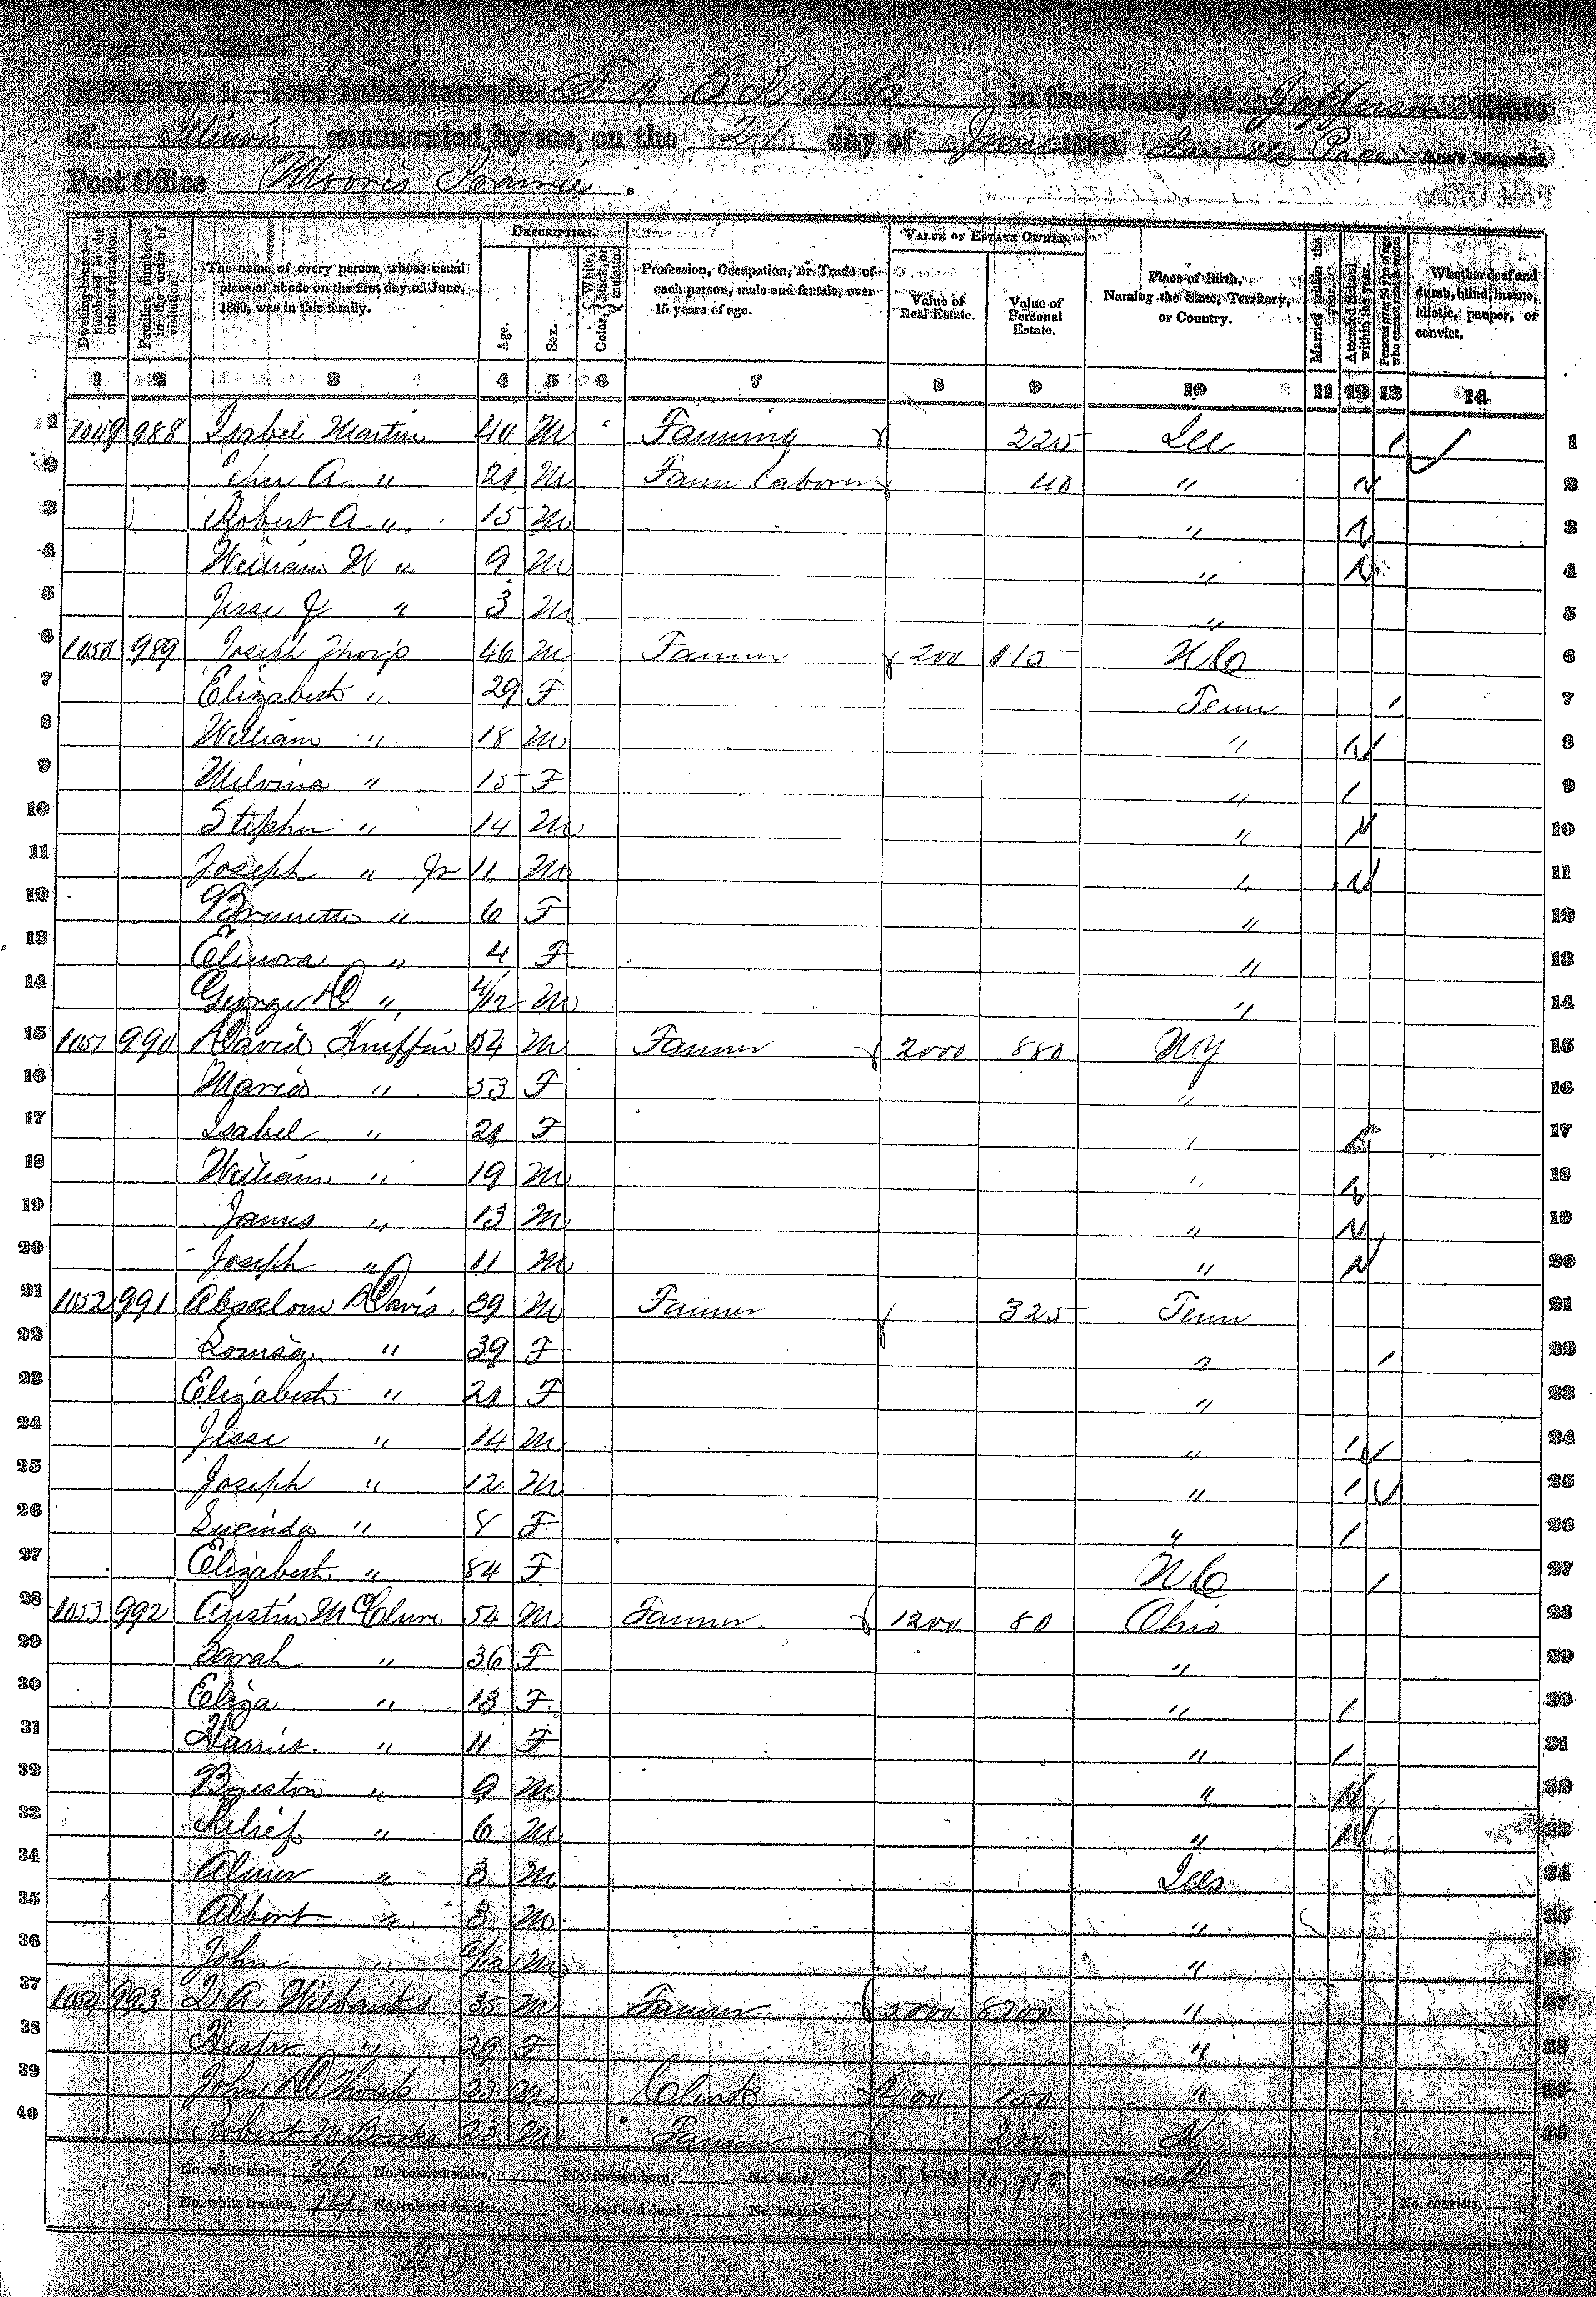 Page No. 933
SCHEDULE 1.—Free Inhabitants in T 4 S R 4 E in the County of Jefferson State
of Illinois enumerated by me, on the 21 day of June 1860. Pace Ass't Marshal
Post Office Moores Prairie.
DESCRIPTION. VALUE OF ESTATE OWNED.
Dwelling-houses—numbered in the order of visitation. Families numbered in the order of visitation. The name of every person whose usual place of abode on the first day of June, 1860, was in this family. Age. Sex. Color, White, black, or mulatto. Profession, Occupation, or Trade of each person, male and female, over 15 years of age. Value of Real Estate. Value of Personal Estate. Place of Birth, Naming the State, Territory, or Country. Married within the year. Attended School within the year. Persons over 20 y'rs of age who cannot read & write. Whether deaf and dumb, blind, insane, idiotic, pauper, or convict.
1 2 3 4 5 6 7 8 9 10 11 12 13 14
1 1049 988 Isabel Martin 40 M Farming 225 Ill / 1
2 A " 21 M Farm Laborer 40 " 2
3 Robert A " 15 M " 3
4 William W " 9 M " 4
5 Jesse J " 3 M " 5
6 1050 989 Joseph Thorp 46 M Farmer 200 115 N C 6
7 Elizabeth " 29 F Tenn / 7
8 William " 18 M " 8
9 Melvina " 15 F " / 9
10 Stephen " 14 M " 10
11 Joseph " Jr 11 M " 11
12 Brunette " 6 F " 12
13 Elinora " 4 F " 13
14 George D " 4/12 M " 14
15 1051 990 David Kniffin 54 M Farmer 2000 880 N Y 15
16 Maria " 53 F " 16
17 Isabel " 21 F " 17
18 William " 19 M " 18
19 James " 13 M " 19
20 Joseph " 11 M " 20
21 1052 991 Absalom Davis 39 M Farmer 325 Tenn 21
22 Louisa " 39 F " / 22
23 Elizabeth " 21 F " 23
24 Jesse " 14 M " / 24
25 Joseph " 12 M " / 25
26 Lucinda " 8 F " / 26
27 Elizabeth " 84 F N C / 27
28 1053 992 Austin McClure 54 M Farmer 1200 80 Ohio 28
29 Sarah " 36 F " 29
30 Eliza " 13 F " / 30
31 Harriet " 11 F " / 31
32 " 9 M " 32
33 Relief " 6 M " 33
34 " 3 M Ills 34
35 Albert " 3 M " 35
36 John " /12 M " 36
37 1054 993 Q A Wilbanks 35 M Farmer 5000 8700 " 37
38 Hester " 29 F " 38
39 John D Thorp 23 M Clerk 400 150 " 39
40 Robert M Brooks 23 M Farmer 200 Ky 40
No. white males, 26 No. colored males, No. foreign born, No. blind, 8,800 10,715 No. idiotic,
No. white females, 14 No. colored females, No. deaf and dumb, No. insane, No. paupers, No. convicts,
40